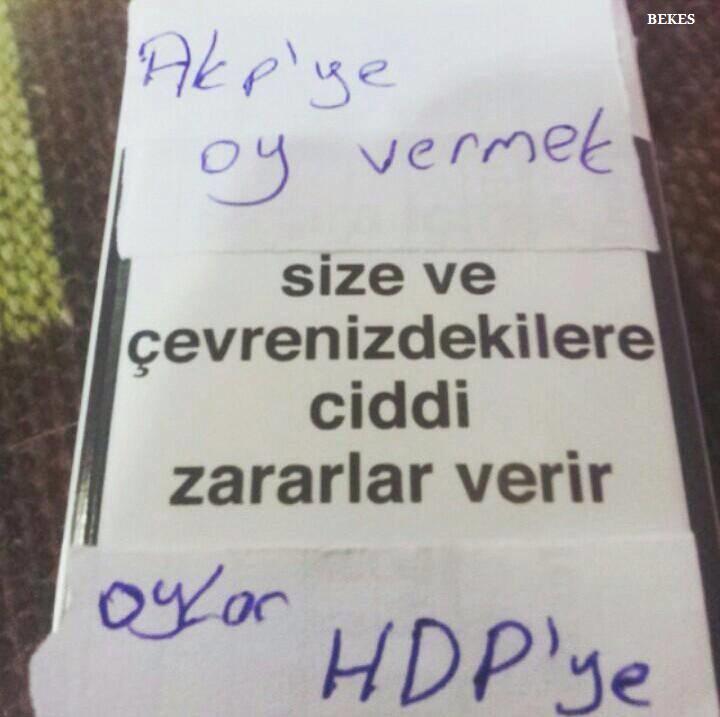 BEKES
Akp'ye
oy vermek
size ve
çevrenizdekilere
ciddi
zararlar verir
oylar
HDP'ye